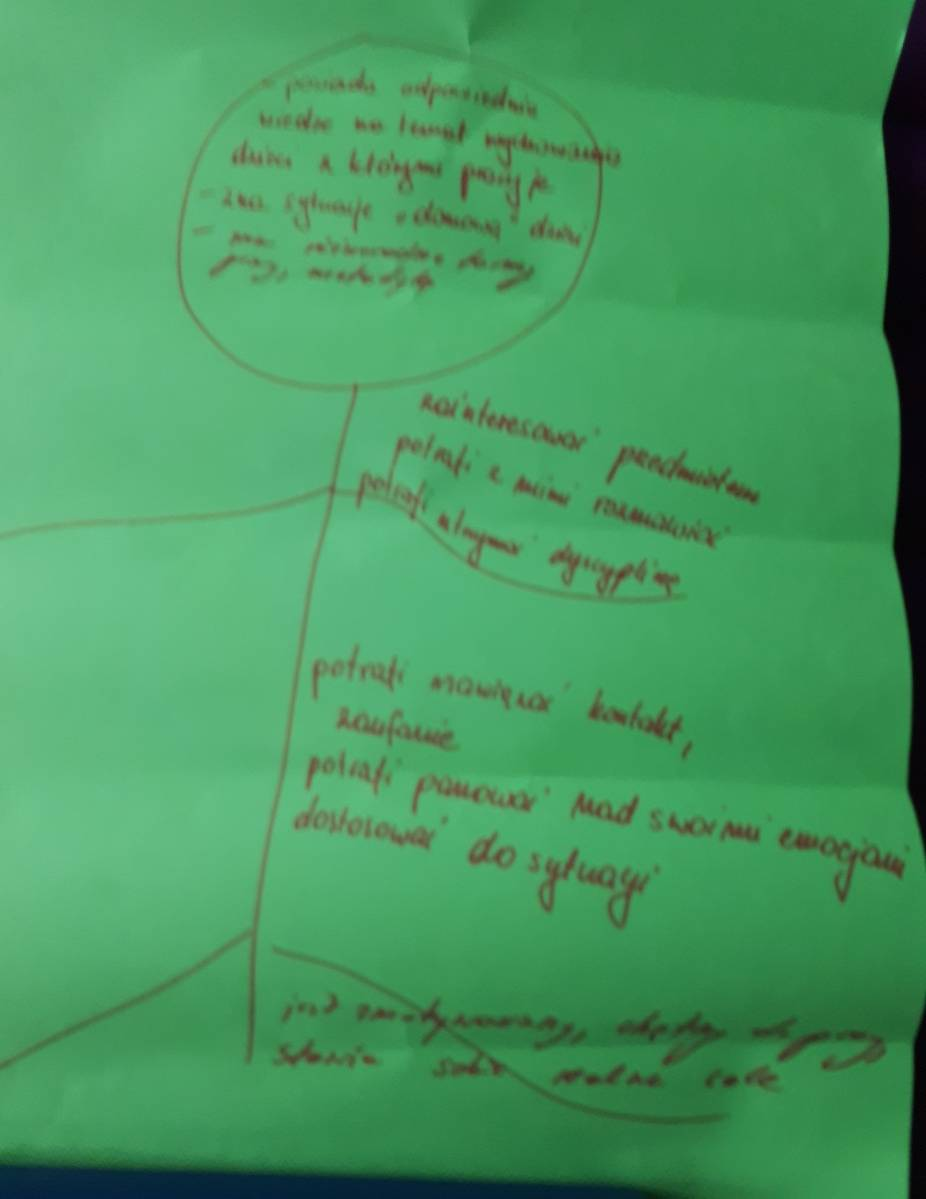 - posiada odpowiednią
wiedzę na temat wychowania
dzieci z którymi pracuje
- zna sytuację "domową" dzieci
- zna
pracy, metodykę
zainteresować przedmiotem
potrafi z nimi rozmawiać
potrafi utrzymać dyscyplinę
potrafi nawiązać kontakt,
zaufanie
potrafi panować nad swoimi emocjami
dostosować do sytuacji
jest zmotywowany, chętny do pracy,
stawia sobie realne cele